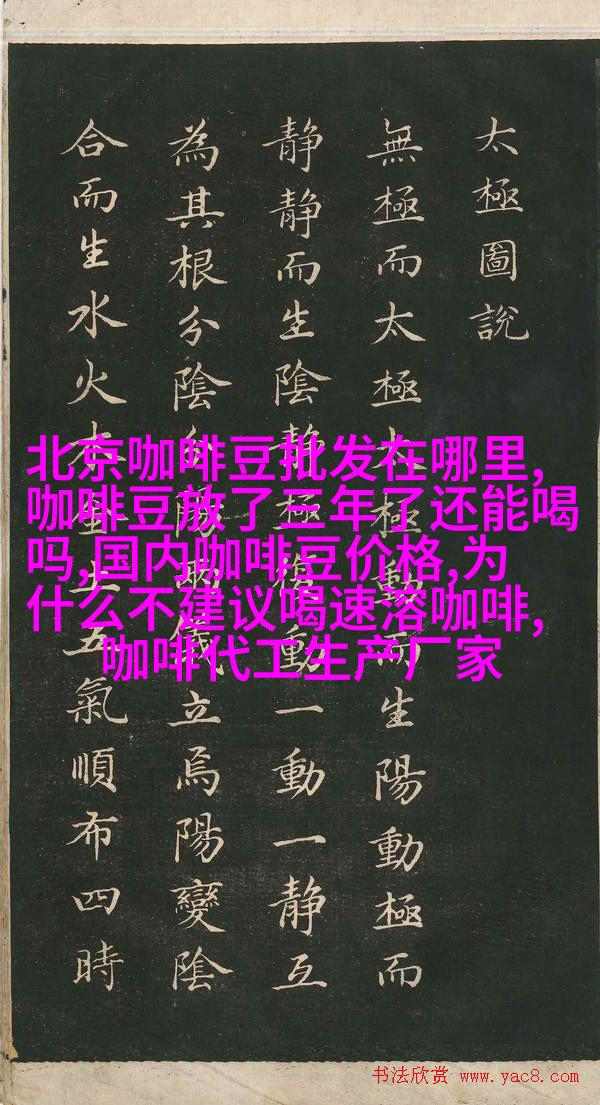 太極圖說
無極而太極太極動而生陽動極而
静静而生陰静極復動一動一静互
為其根分陰分陽兩儀立焉陽變陰
合而生水火木金土五氣順布四時
北京咖啡豆批发在哪里,
咖啡豆放了三年了还能喝
吗,国内咖啡豆价格,为
什么不建议喝速溶咖啡,
咖啡代工生产厂家
书法欣赏 www.yac8.com